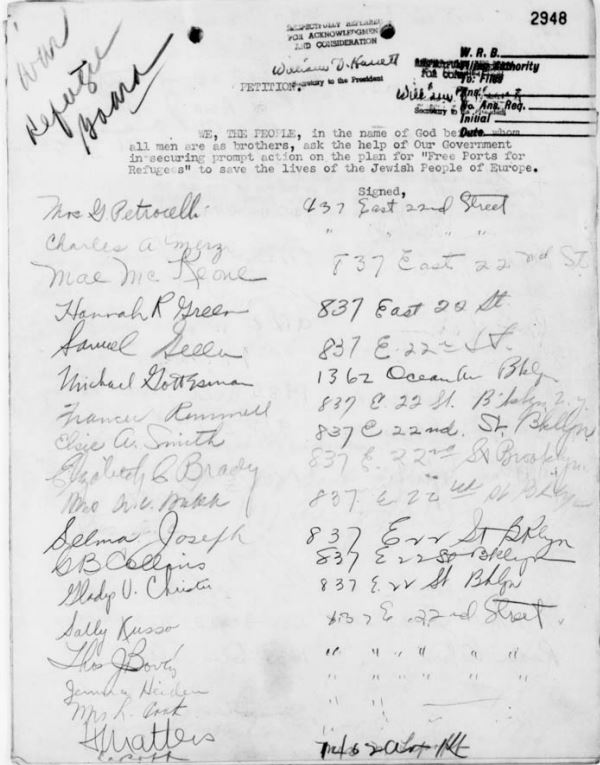 2948
RESPECTFULLY REFERRED
FOR ACKNOWLEDGMENT
AND CONSIDERATION
Secretary to the President
War
Refugee
Board
W. R. B.
To: Files
No. Ans. Req.
Initial
Date
PETITION.
WE, THE PEOPLE, in the name of God before whom
all men are as brothers, ask the help of Our Government
in securing prompt action on the plan for "Free Ports for
Refugees" to save the lives of the Jewish People of Europe.
Signed,
Mrs G Petrocelli 837 East 22nd Street
Charles A Merz " " " "
Mae Mc Keone 837 East 22nd St
Hannah R Green 837 East 22 St.
Samuel 837 E. 22nd St.
Michael Gottesman 1362 Ocean Av Bklyn
Frances Rommell 837 E. 22 St. B'klyn N.Y.
Elsie A. Smith 837 E 22nd. St. Bklyn
Elizabeth C Brady 837 E. 22nd St Brooklyn.
Mrs 837 E. 22nd St Bklyn
Selma Joseph 837 E 22 St BKlyn
C B Collins 837 E 22 St Bklyn
Gladys V. Christie 837 E. 22 St Bklyn
Sally Russo 837 E. 22nd Street.
Thos J Bovey " " " " " "
Jemma Heiden " " " " "
Mrs L.
Mattes